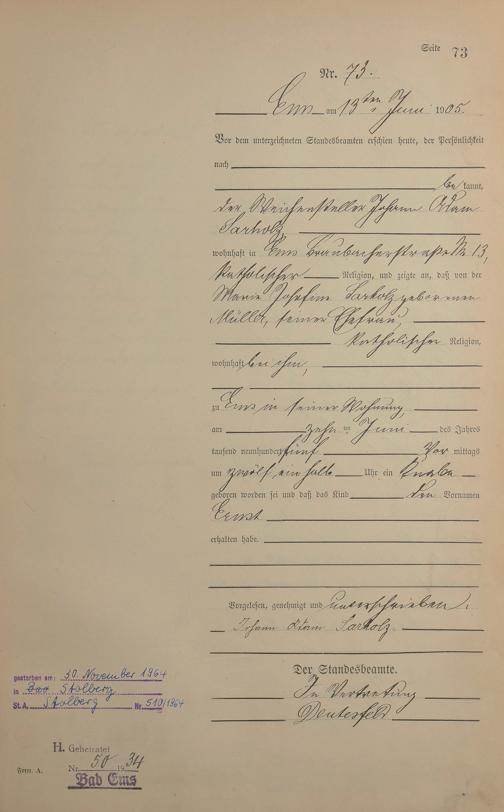 Seite 73
Nr. 73.
Ems am 13ten Juni 1905.
Vor dem unterzeichneten Standesbeamten erschien heute, der Persönlichkeit
nach
bekannt,
der Weichensteller Johann Adam
Sarholz,
wohnhaft in Ems Braubacherstraße № 13,
katholischer Religion, und zeigte an, daß von der
Marie Josefine Sarholz geborenen
Müller, seiner Ehefrau,
katholischer Religion,
wohnhaft bei ihm,
zu Ems in seiner Wohnung,
am zehnten Juni des Jahres
tausend neunhundert fünf Vormittags
um zwölf einhalb Uhr ein Knabe
geboren worden sei und daß das Kind den Vornamen
Ernst
erhalten habe.
Vorgelesen, genehmigt und unterschrieben.
Johann Adam Sarholz
Der Standesbeamte.
In Vertretung
gestorben am: 30. November 1964
in Bad Stolberg
St.A. Stolberg Nr. 510/1964
H. Geheiratet
Nr. 50 1934
Bad Ems
Form. A.